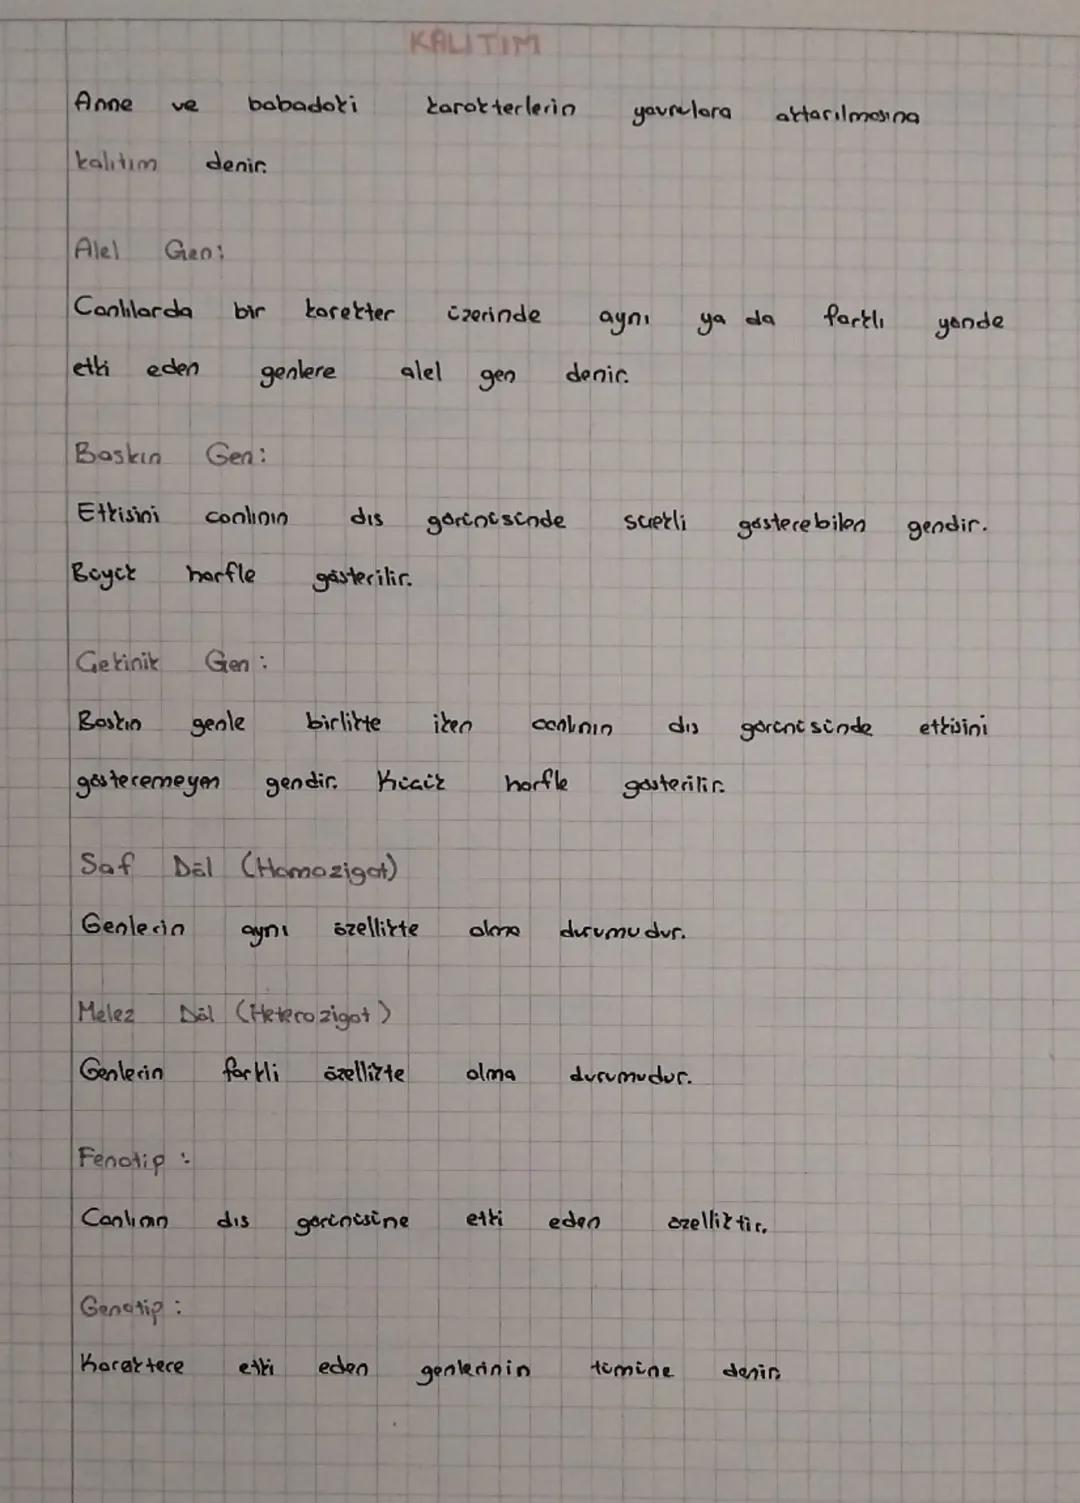 KALITIM
Anne ve babadaki karakterlerin yavrulara aktarılmasına
kalıtım denir.
Alel Gen:
Canlılarda bir karekter üzerinde aynı ya da farklı yönde
etki eden genlere alel gen denir.
Baskın Gen:
Etkisini canlının dış görünüşünde sürekli gösterebilen gendir.
Büyük harfle gösterilir.
Çekinik Gen:
Baskın genle birlikte iken canlının dış görünüşünde etkisini
gösteremeyen gendir. Küçük harfle gösterilir.
Saf Döl (Homozigot)
Genlerin aynı özellikte olma durumudur.
Melez Döl (Heterozigot)
Genlerin farkli özellikte olma durumudur.
Fenotip:
Canlının dış görünüşüne etki eden özelliktir.
Genotip:
Karaktere etki eden genlerinin tümüne denir.